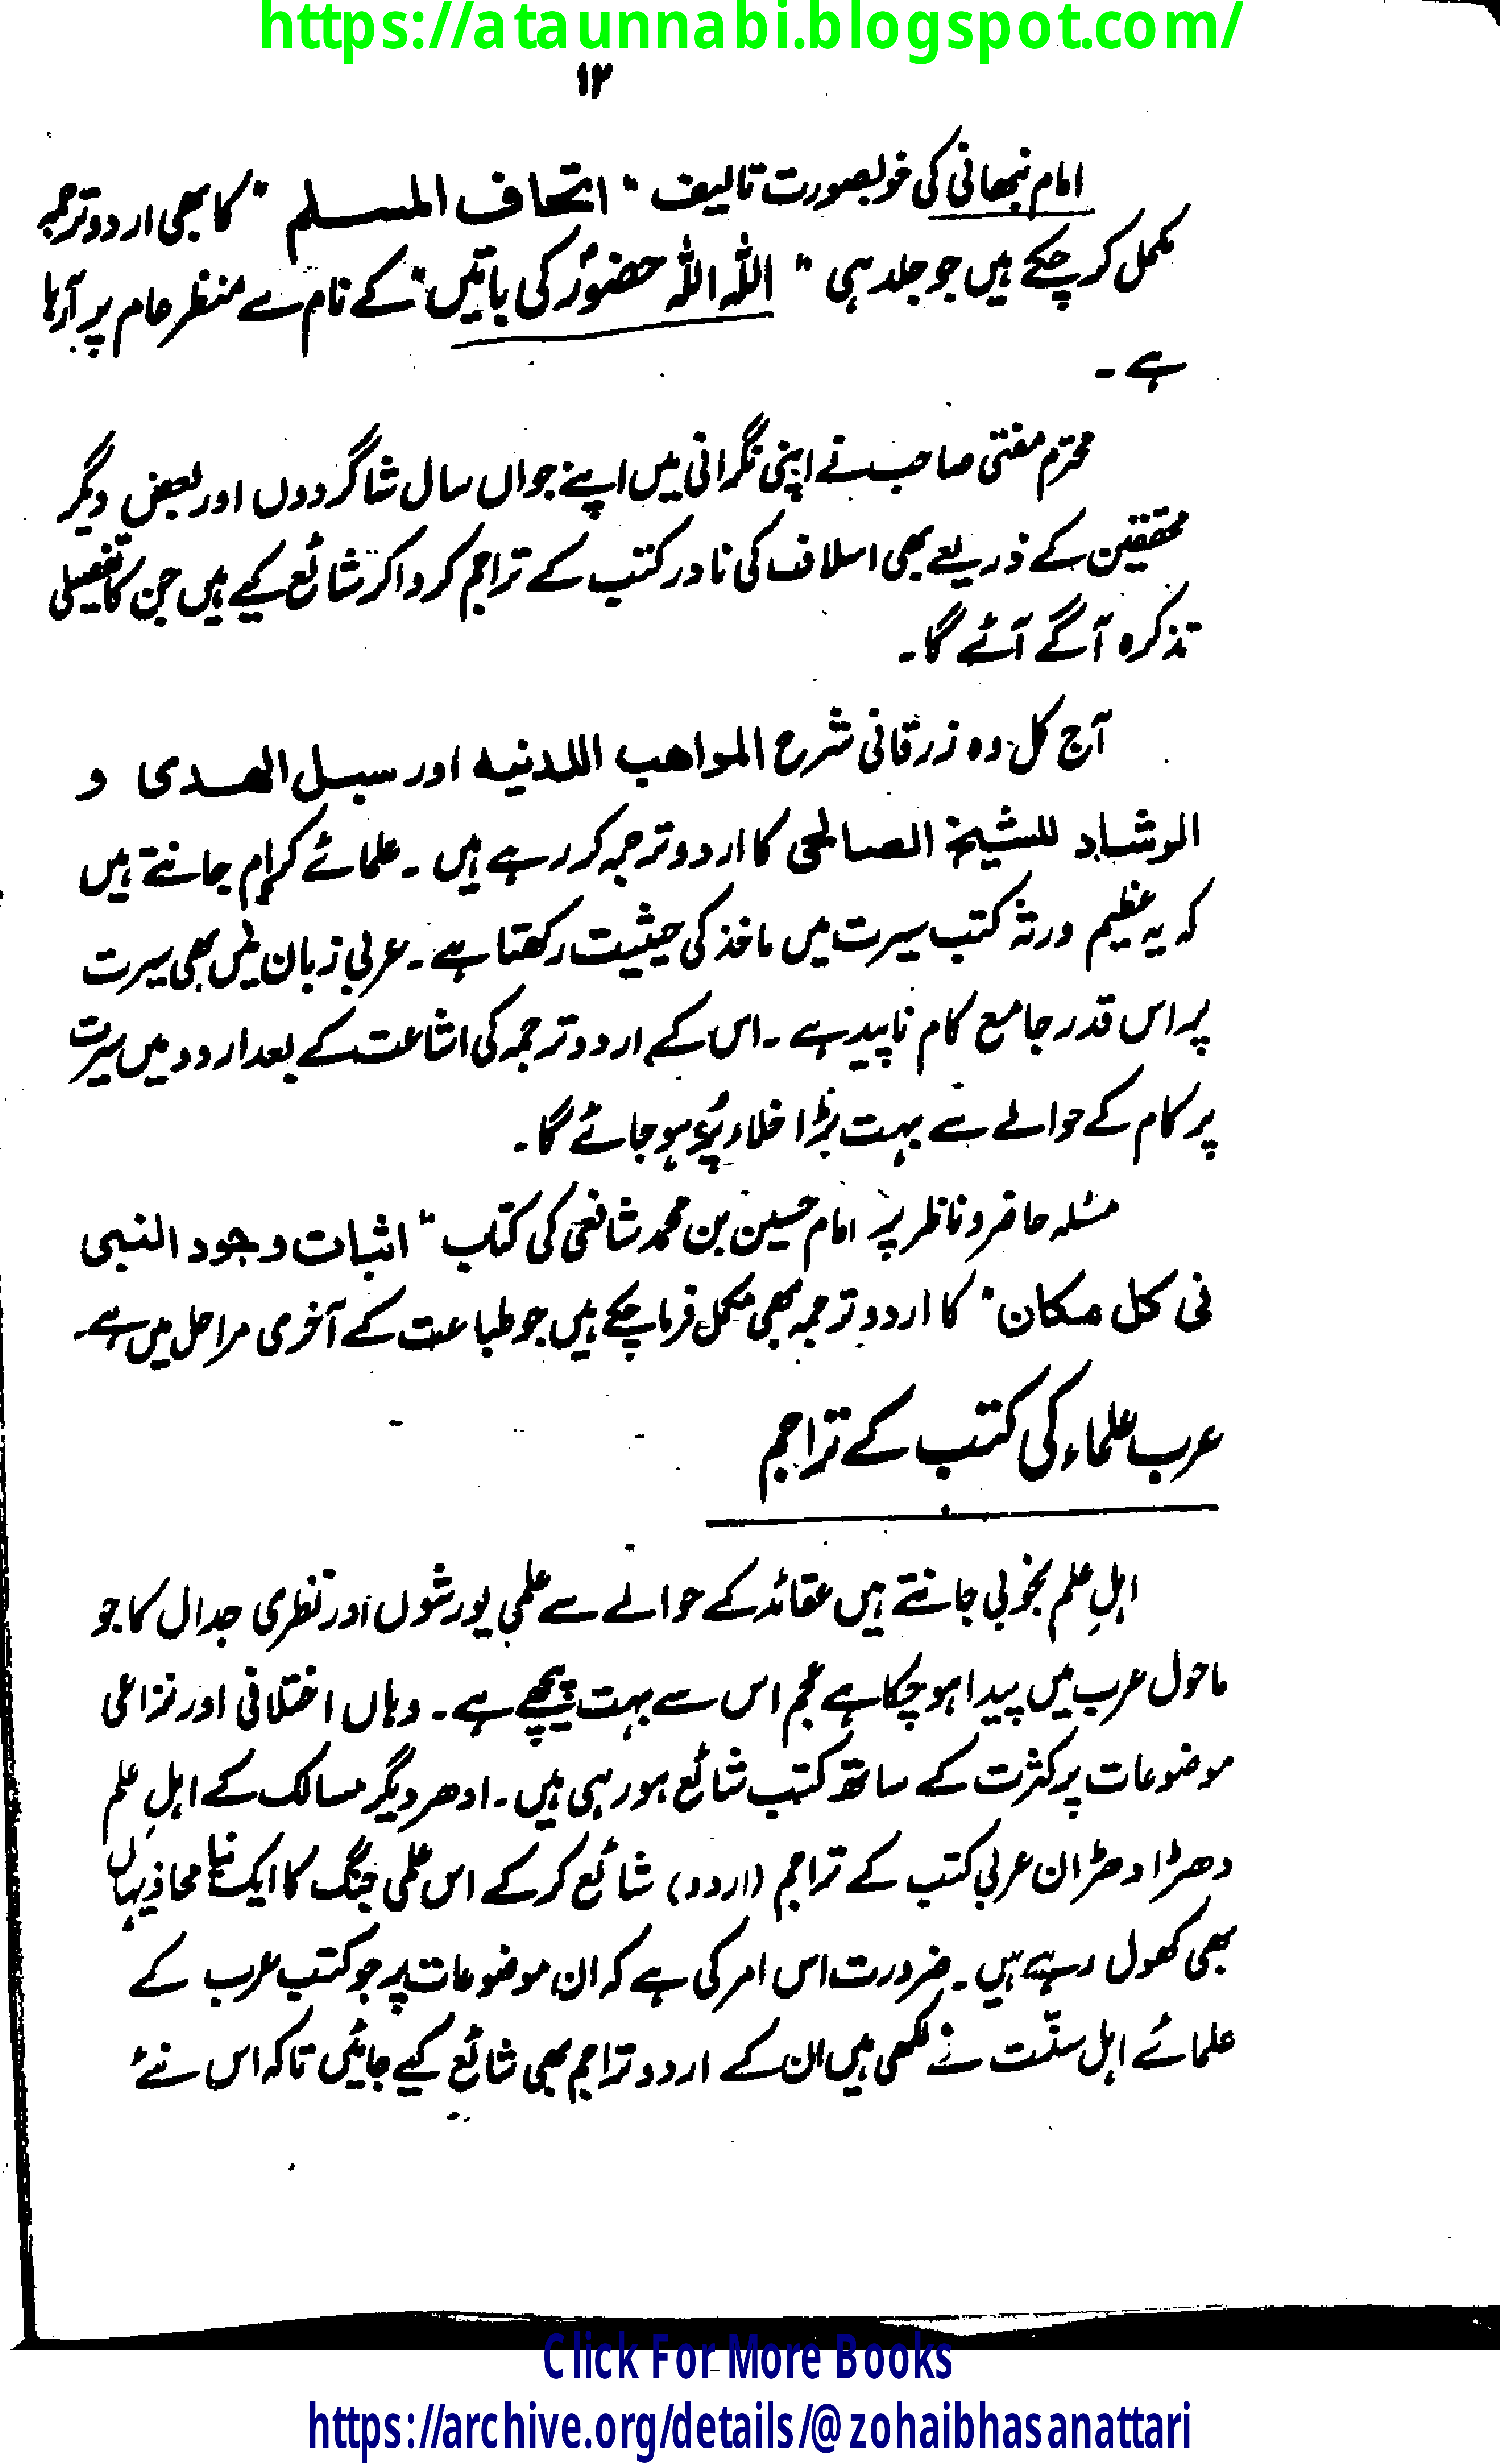 https://ataunnabi.blogspot.com/
۱۲
امام نبھانی کی خوبصورت تالیف "اتحاف المسلم" کا بھی اردو ترجمہ
مکمل کر چکے ہیں جو جلد ہی "اللہ اللہ حضورؐ کی باتیں" کے نام سے منظر عام پر آرہا
ہے۔
محترم مفتی صاحب نے اپنی نگرانی میں اپنے جواں سال شاگردوں اور بعض دیگر
محققین کے ذریعے بھی اسلاف کی نادر کتب کے تراجم کروا کر شائع کیے ہیں جن کا تفصیلی
تذکرہ آگے آئے گا۔
آج کل وہ زرقانی شرح المواهب اللدنیه اور سبل الهدی و
الرشاد للشیخ الصالحی کا اردو ترجمہ کر رہے ہیں۔ علمائے کرام جانتے ہیں
کہ یہ عظیم ورثہ کتب سیرت میں ماخذ کی حیثیت رکھتا ہے۔ عربی زبان میں بھی سیرت
پر اس قدر جامع کام ناپید ہے۔ اس کے اردو ترجمہ کی اشاعت کے بعد اردو میں سیرت
پر کام کے حوالے سے بہت بڑا خلاء پُر ہو جائے گا۔
مسئلہ حاضر و ناظر پر امام حسین بن محمد شافعی کی کتاب "اثبات وجود النبی
فی کل مکان" کا اردو ترجمہ بھی مکمل فرما چکے ہیں جو طباعت کے آخری مراحل میں ہے۔
عرب علماء کی کتب کے تراجم
اہلِ علم بخوبی جانتے ہیں عقائد کے حوالے سے علمی یورشوں اور نظری جدال کا جو
ماحول عرب میں پیدا ہو چکا ہے عجم اس سے بہت پیچھے ہے۔ وہاں اختلافی اور نزاعی
موضوعات پر کثرت کے ساتھ کتب شائع ہو رہی ہیں۔ ادھر دیگر مسالک کے اہلِ علم
دھڑا دھڑ ان عربی کتب کے تراجم (اردو) شائع کر کے اس علمی جنگ کا ایک نیا محاذ یہاں
بھی کھول رہے ہیں۔ ضرورت اس امر کی ہے کہ ان موضوعات پر جو کتب عرب کے
علمائے اہل سنّت نے لکھی ہیں ان کے اردو تراجم بھی شائع کیے جائیں تاکہ اس نئے
Click For More Books
https://archive.org/details/@zohaibhasanattari